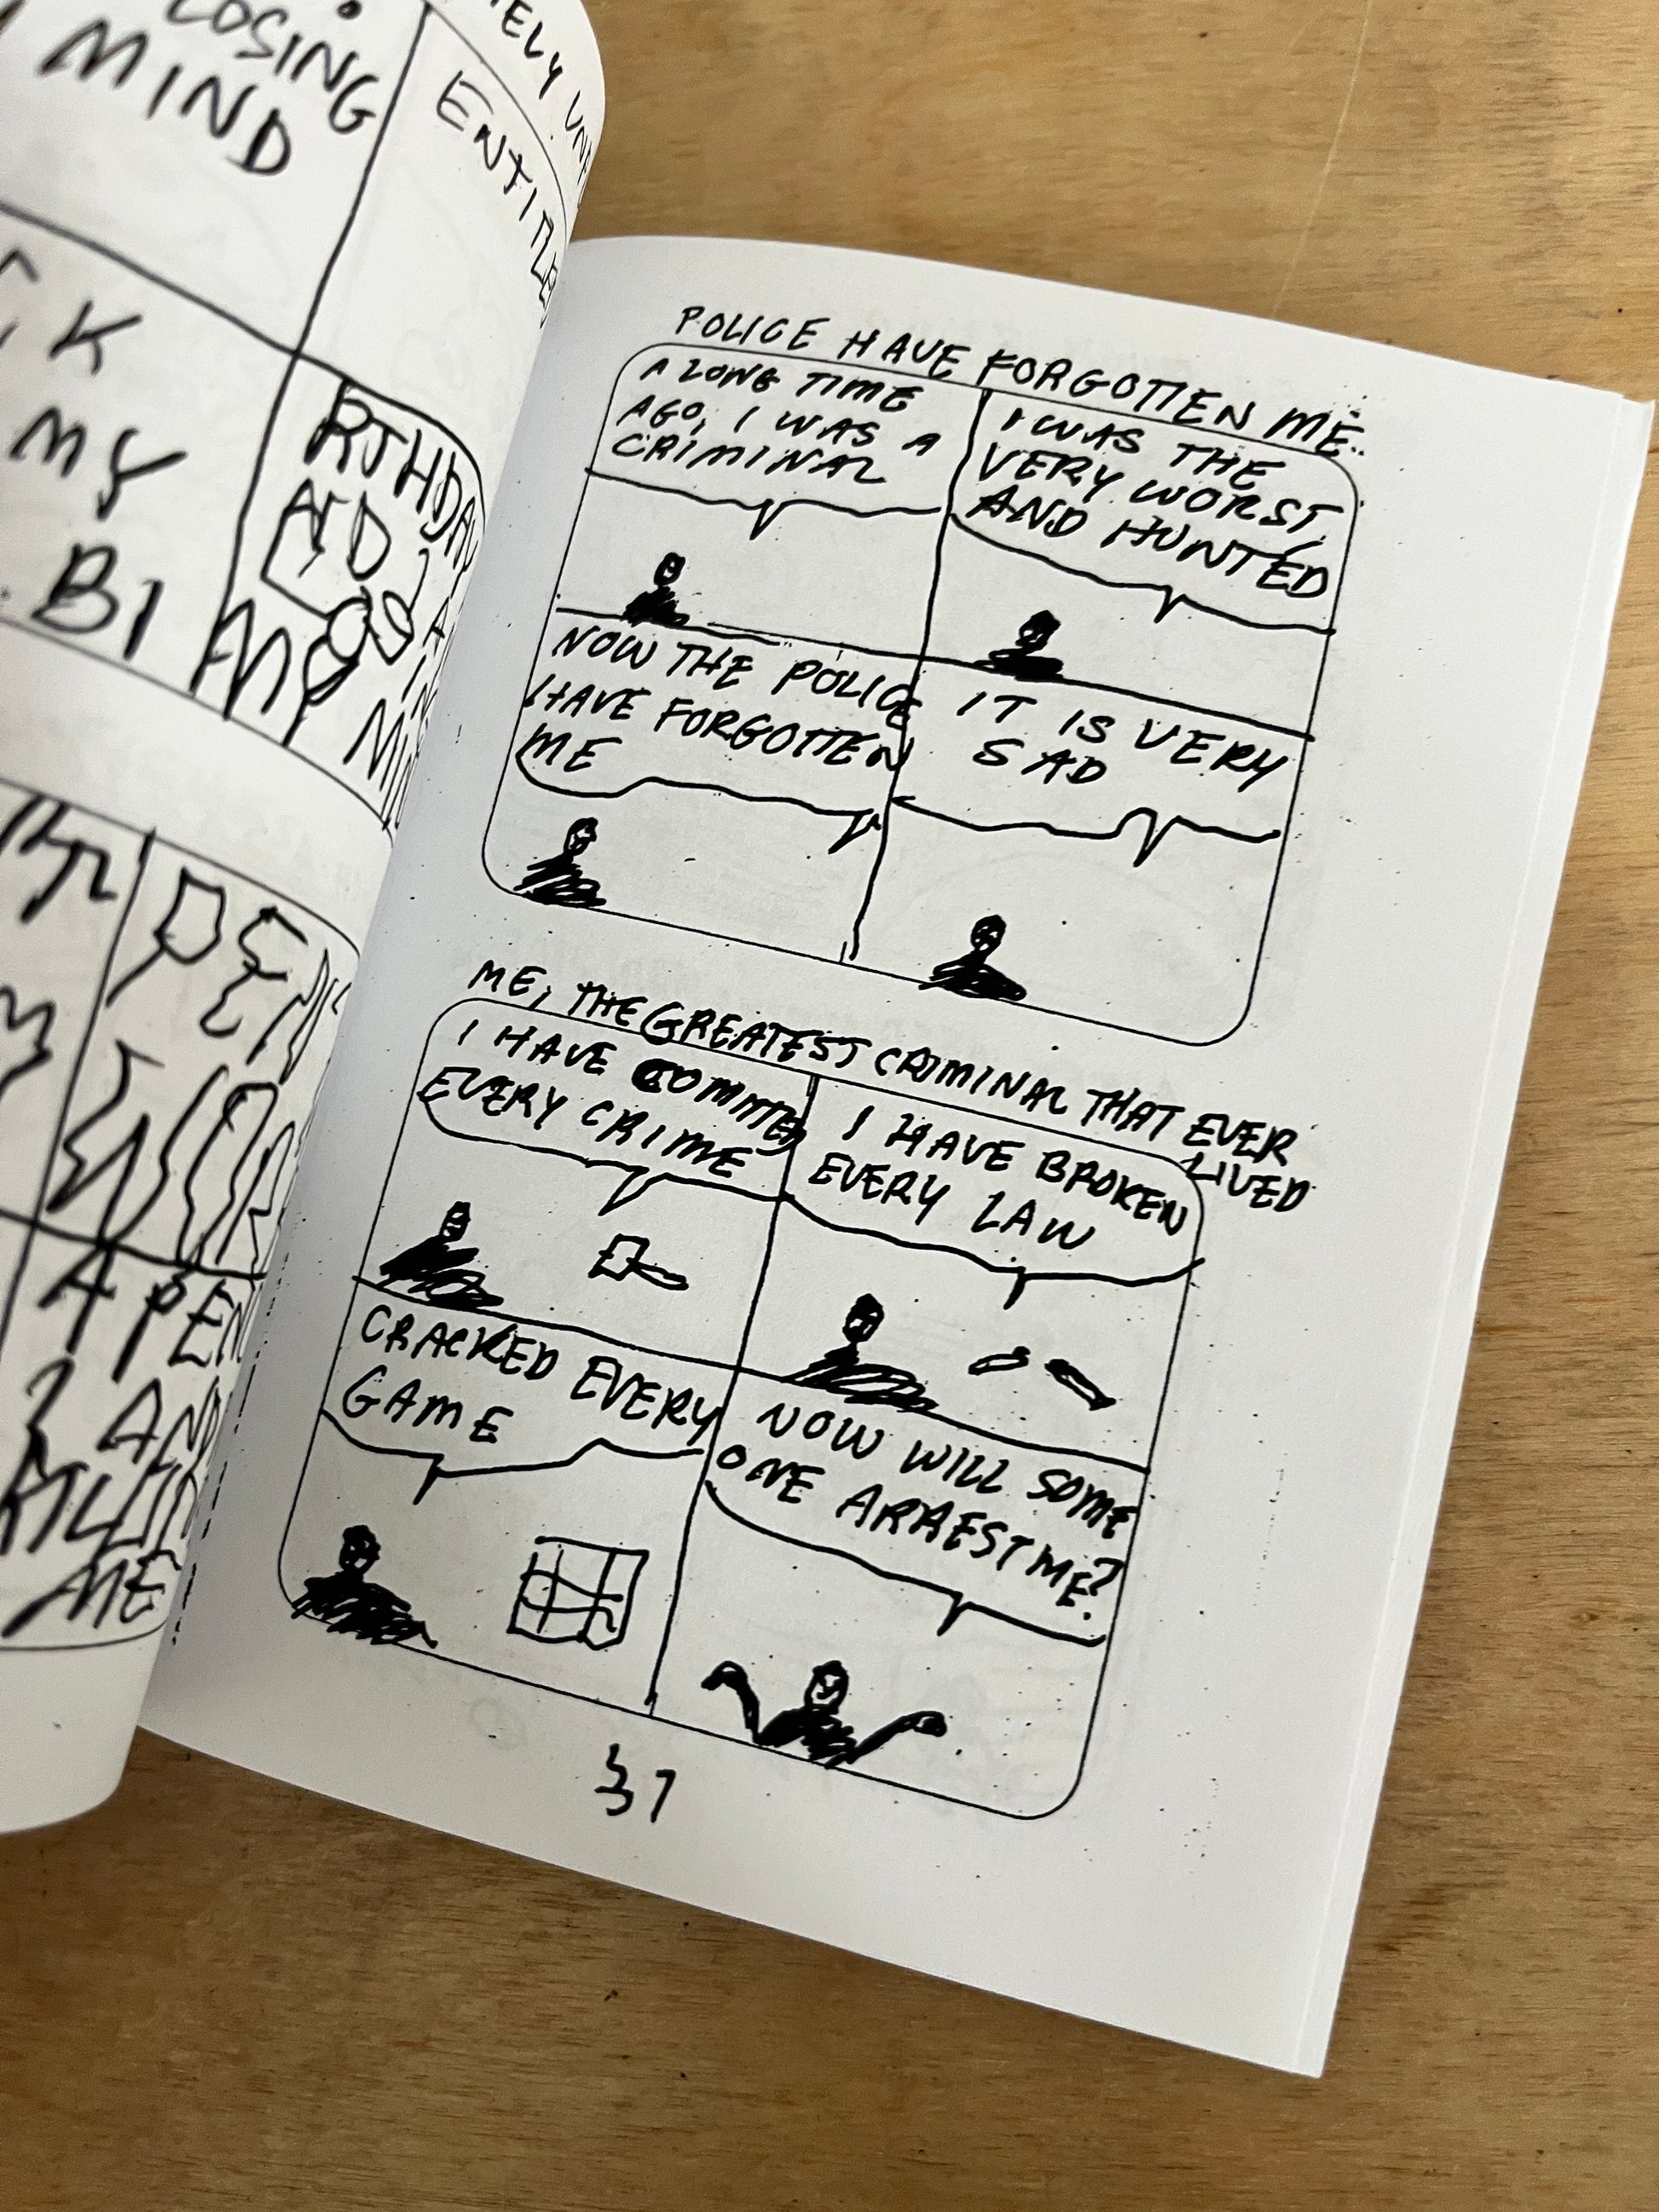 LOSING
MIND
ENTITLE
K
MY
BI
MY
A PEN
AND
ME
POLICE HAVE FORGOTTEN ME.
A LONG TIME
AGO, I WAS A
CRIMINAL
I WAS THE
VERY WORST
AND HUNTED
NOW THE POLICE
HAVE FORGOTTEN
ME
IT IS VERY
SAD
ME, THE GREATEST CRIMINAL THAT EVER
LIVED
I HAVE COMMITTED
EVERY CRIME
I HAVE BROKEN
EVERY LAW
CRACKED EVERY
GAME
NOW WILL SOME
ONE ARREST ME?
37